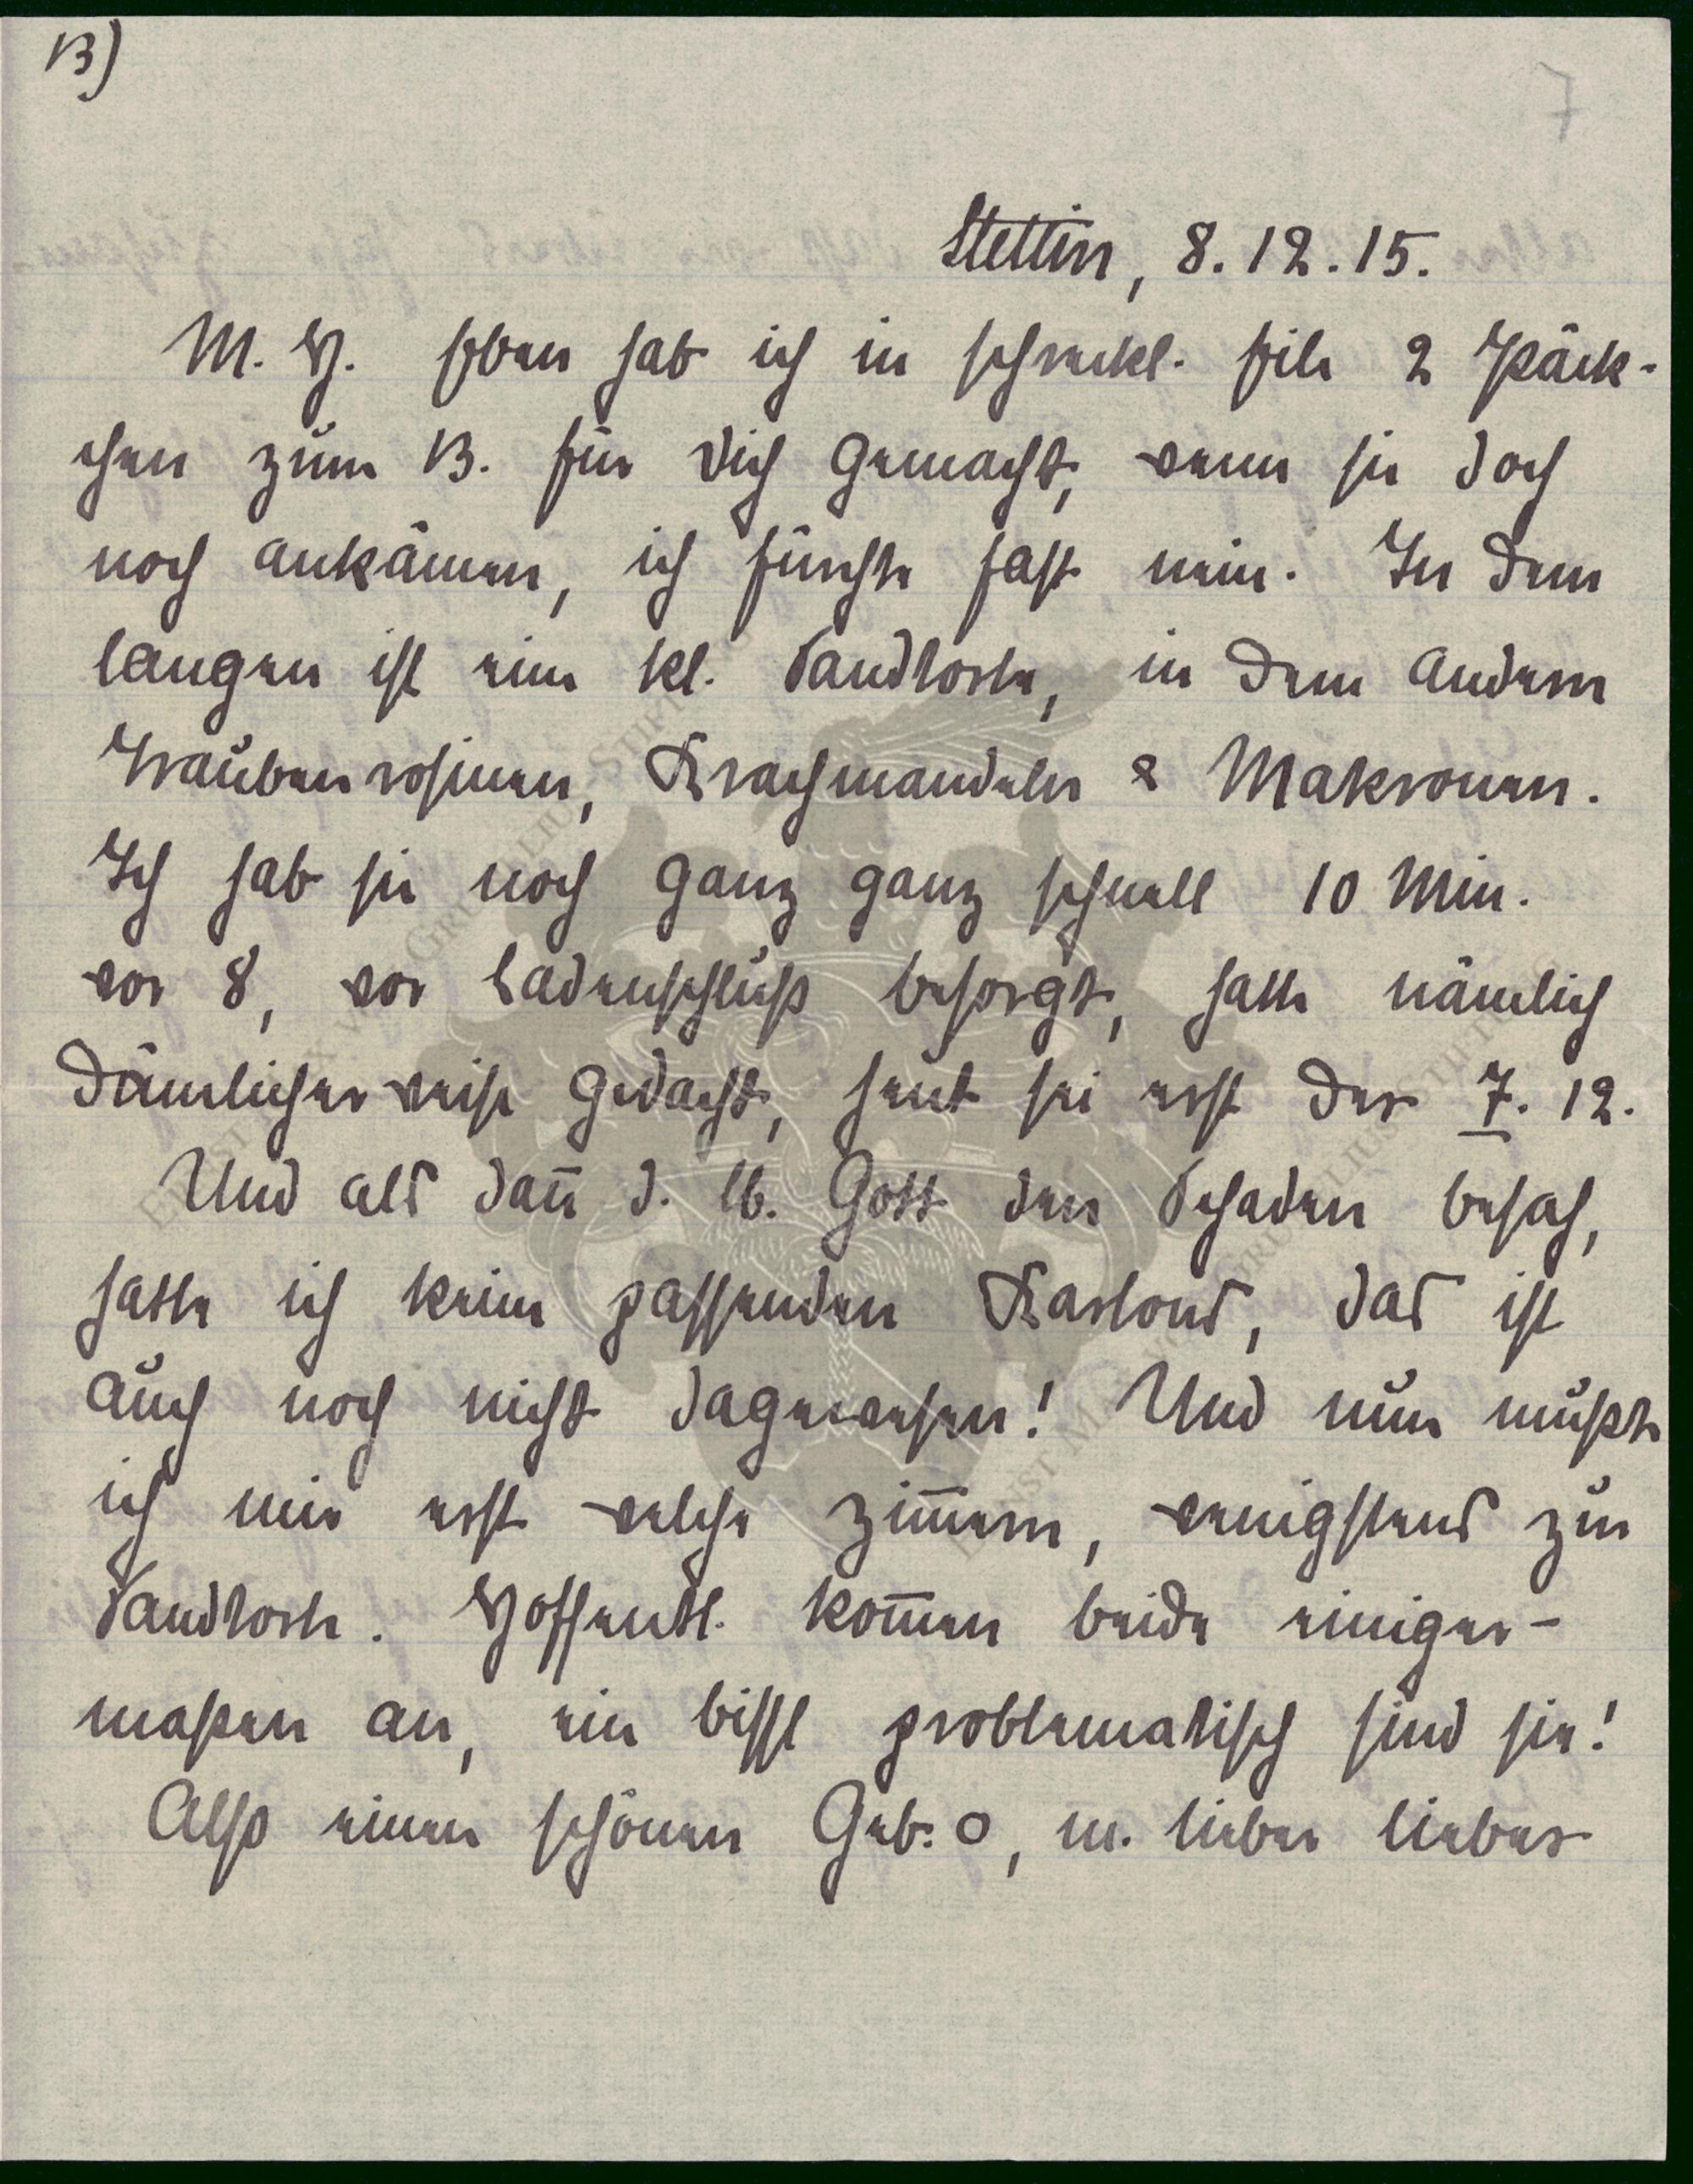 13)
7
Stettin, 8.12.15.
M. H. Eben hab ich in schreckl. Eile 2 Päck-
chen zum 13. für Dich gemacht, wenn sie doch
noch ankämen, ich fürchte fast nein. In dem
langen ist eine kl. Sandtorte, in dem andern
Traubenrosinen, Krachmandeln & Makronen.
Ich hab sie noch ganz ganz schnell 10 Min.
vor 8, vor Ladenschluß besorgt, hatte nämlich
dämlicherweise gedacht, heut sei erst der 7. 12.
Und als dan̄ d. lb. Gott den Schaden besah,
hatte ich keine passenden Kartons, das ist
auch noch nicht dagewesen! Und nun mußte
ich mir erst welche zim̄ern, wenigstens zur
Sandtorte. Hoffentl. kom̄en beide einiger-
maßen an, ein bissl problematisch sind sie!
Also einen schönen Geb. o, m. lieber lieber